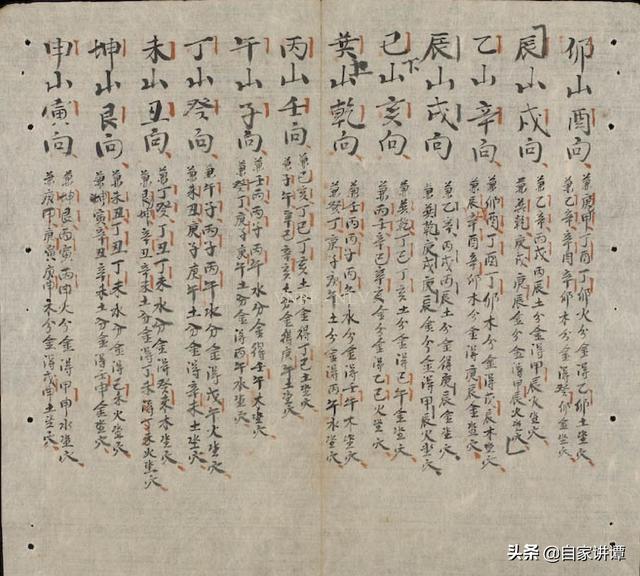 卯山酉向
兼庚甲丁酉丁卯火分金得乙卯土坐穴
兼乙辛辛酉辛卯木分金得癸卯金坐穴
辰山戌向
兼乙辛丙戌丙辰土分金得甲辰火坐穴
兼巽乾庚戌庚辰金分金得甲辰火坐穴
乙山辛向
兼卯酉丁酉丁卯木分金得戊辰木坐穴
兼辰辛酉辛卯木分金得庚辰金坐穴
辰山戌向
兼乙辛丙戌丙辰土分金得庚辰金坐穴
兼巽乾庚戌庚辰金分金得甲辰火坐穴
下
巳山亥向
兼巽乾丁巳丁亥土分金得己午金坐穴
兼丙壬辛巳辛亥金分金得乙巳火坐穴
上
巽山乾向
兼壬丙丙子丙午水分金得壬午木坐穴
兼癸丁庚子庚午土分金得丙午水坐穴
丙山壬向
兼巳亥丁巳丁亥土分金得丁巳土坐穴
兼子午辛巳辛亥金分金得庚午土坐穴
午山子向
兼壬丙丙子丙午水分金得壬午木坐穴
兼癸丁庚子庚午土分金得丙午水坐穴
丁山癸向
兼午子丙子丙午水分金得戊午火坐穴
兼未丑庚子庚午土分金得辛未土坐穴
未山丑向
兼丁癸丁丑丁未水分金得癸未木坐穴
兼坤辛丑辛未土分金得丁未火坐穴
坤山艮向
兼未丑丁丑丁未水分金得己未火坐穴
兼坤寅辛丑辛未土分金得申金坐穴
申山寅向
兼坤艮丙寅丙申火分金得甲申水坐穴
兼庚甲庚寅庚申木分金得戊申土坐穴
头条 @自家讲谭